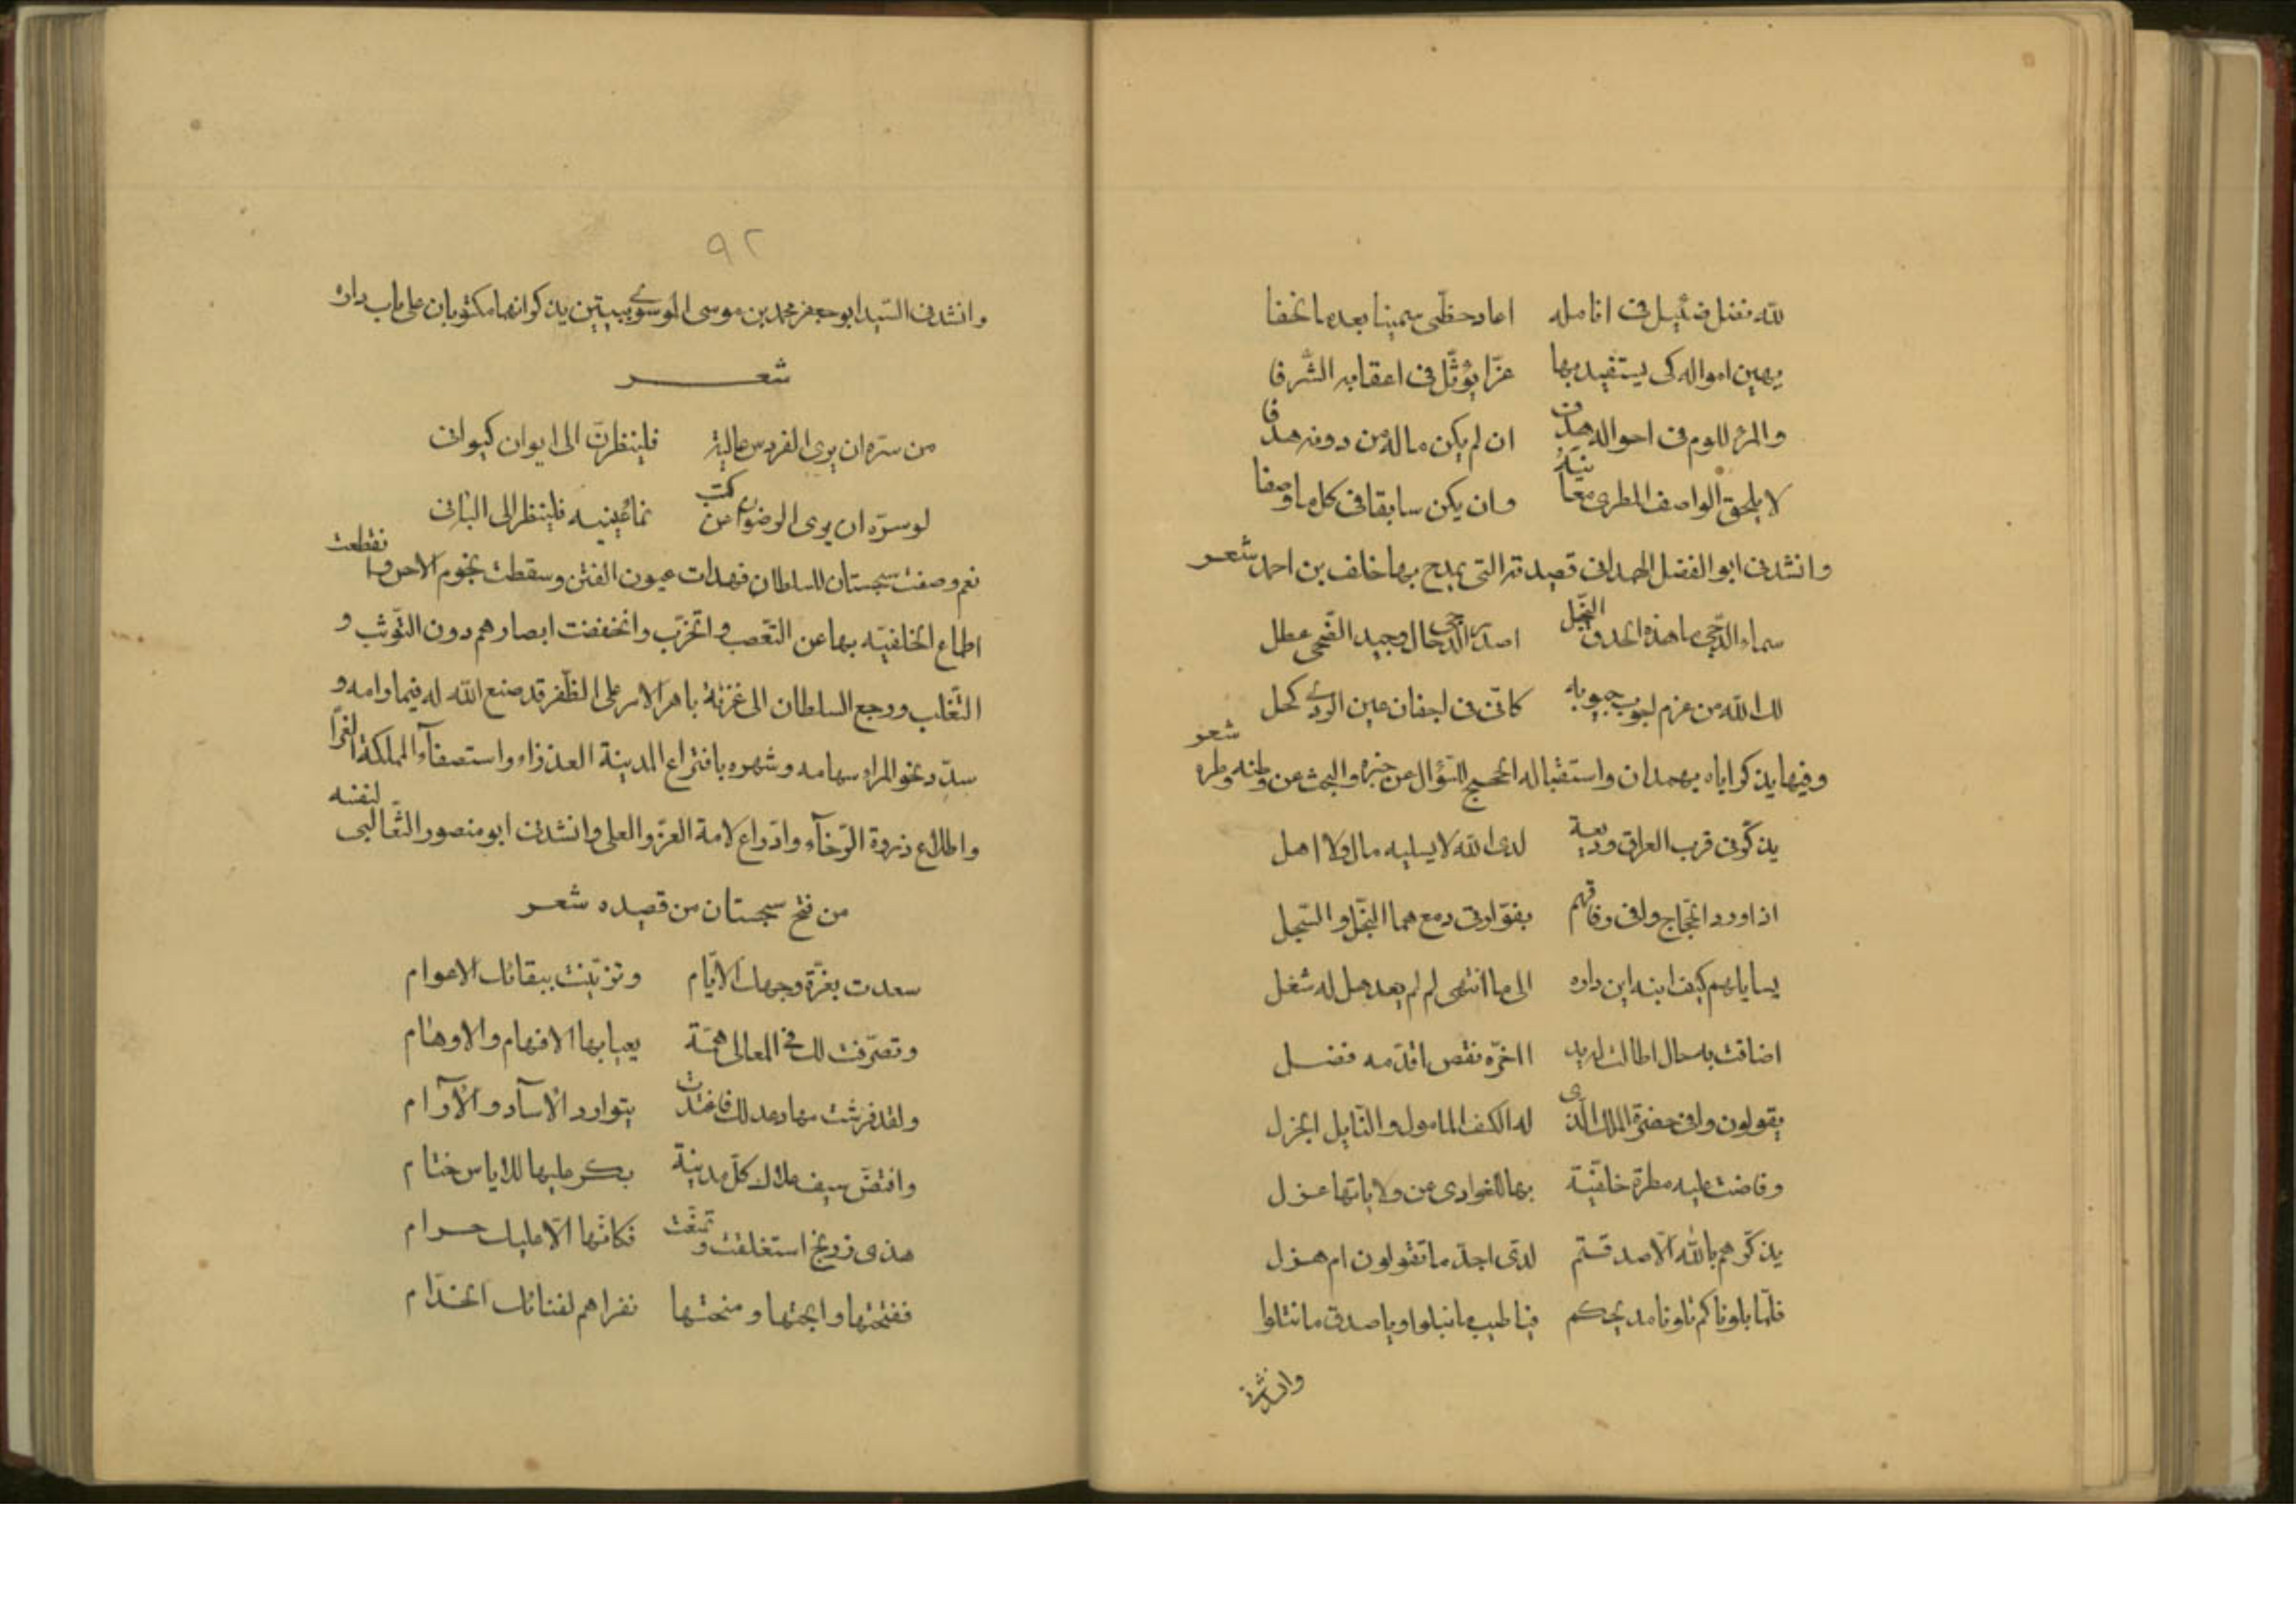 لله فضل ضئيل في انامله اعاد حظّي سمينا بعد ما نحفا
يهين امواله كى يستفيد بها عزّا يؤثّل في اعقابه الشّرفا
والمرء للوم في احواله هدف ان لم يكن ماله من دونه هدفا
لا يلحق الواصف المطرى معانيه وان يكن سابقا في كل ما وصفا
وانشدنى ابو الفضل الهمدانى قصيدته التى يمدح بها خلف بن احمد شعر
سماء الدّجى ما هذه الحدق النّجل اصدر الدّجى حال وجيد الضّحى عطل
لك الله من عزم اجوب جيوبه كانّى في اجفان عين الردى كحل
وفيها يذكر اباه بهمدان واستقباله الحجيج للسّؤال عن خبره والبحث عن وطنه وطره شعر
يذكّرنى قرب العراق وديعة لدى الله لا يسليه مال ولا اهل
اذا ورد الحجّاج وافى رفاقهم بفوّارتى دمع هما النّجل والسّجل
يسايلهم كيف ابنه اين داره الى ما انتهى لم لم يعد هل له شغل
اضاقت به حال اطالت له يد ااخّره نقص اقدّمه فضل
يقولون وافى حضرة الملك الّذى له الكنف المامول والنّايل الجزل
وفاضت عليه مطرة خلفيّة بها للغوادى من ولاياتها عزل
يذكّرهم بالله الّا صدقتم لدّى اجدّ ما تقولون ام هزل
فلمّا بلوناكم تلونا مديحكم فيا طيب ما نبلوا ويا صدق ما نتلوا
وانشدنى
٩٢
وانشدنى السّيد ابو جعفر محمد بن موسى الموسوى ببيتين يذكر انهما مكتوبان على باب داره
شعر
من سرّه ان يرى الفردوس عالية فلينظرنّ الى ايوان كيوان
او سرّه ان يرى الرضوان من كثب بملء عينيه فلينظر الى البانى
نعم وصفت سجستان للسلطان فهدات عيون الفتن وسقطت نجوم الاحن وانقطعت
اطماع الخلفيّه بها عن التعّصب والتحزّب وانخفضت ابصارهم دون التوّثب و
التّغلب ورجع السلطان الى غزنة باهر الامر على الظّفر قد صنع الله له فيما رامه و
سدّد نحو المراد سهامه وشهره بافتراع المدينة العذراء واستصفآء المملكة الغرّا
واطلاع ذروة الرّخآء وادّراع لامة العزّ والعلى وانشدنى ابو منصور الثّعالبى لنفسه
من فتح سجستان من قصيده شعر
سعدت بغرّة وجهك الايّام وتزيّنت ببقائك الاعوام
وتصرّفت لك في المعالى همّة يعيا بها الافهام والاوهام
ولقد فرشت مهاد عدلك فاغتدت بتوارد الاساد والآرام
وافتضّ سيف علاك كلّ مدينة بكر عليها للاياس ختام
هذى زرنج استغلقت وتمنّعت فكانّها الّا عليك حرام
ففتحتها وابحتها ومنحتها نفرا هم لفنائك الخدّام